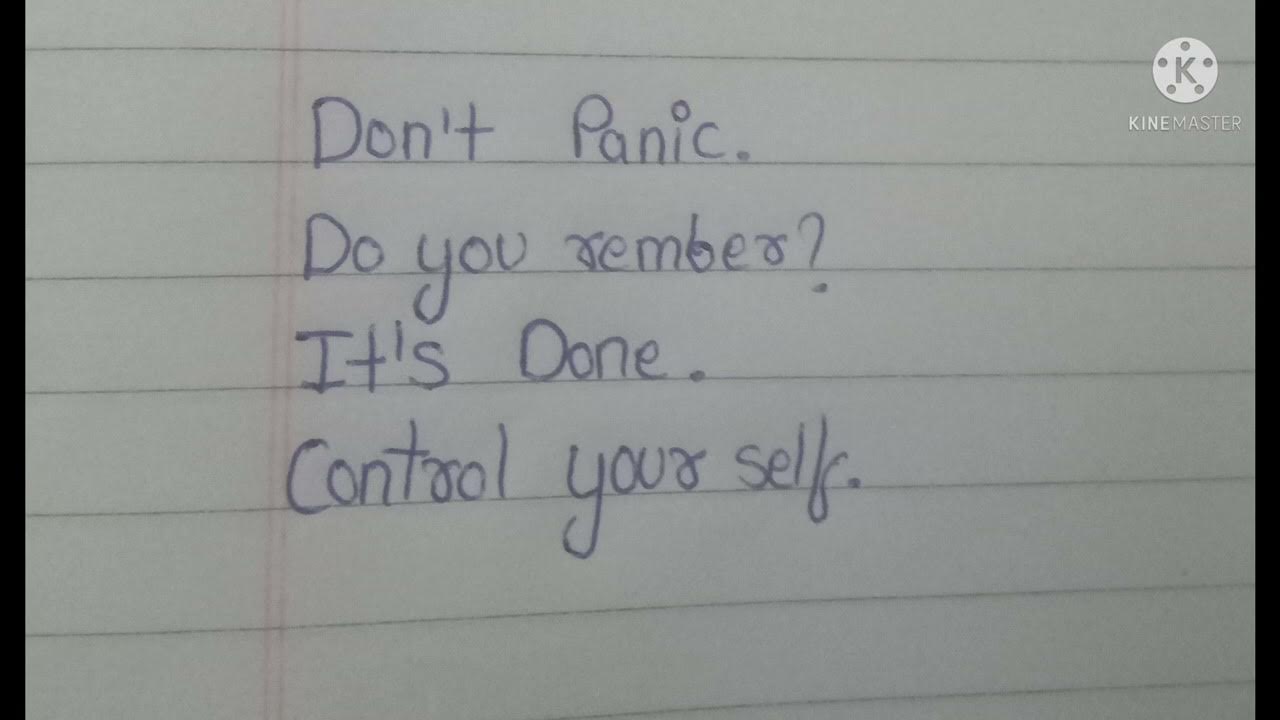 Don't Panic.
Do you rember?
It's Done.
Control your self.
KINEMASTER